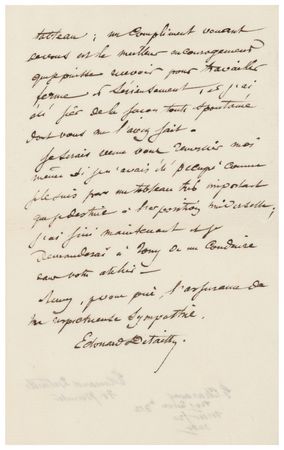 tableau ; un compliment venant
de vous est le meilleur encouragement
que puisse recevoir pour travailler
ferme & sérieusement, et j'ai
été fier de la façon toute spontanée
dont vous me l'avez fait.
Je serais venu vous remercier moi
même si je n'avais été occupé comme
je le suis par un tableau très important
que je destine à l'exposition universelle ;
j'ai fini maintenant et je
demanderai à Tony de me conduire
dans votre atelier —
Recevez, je vous prie, l'assurance de
ma respectueuse sympathie.
Edouard Detaille.